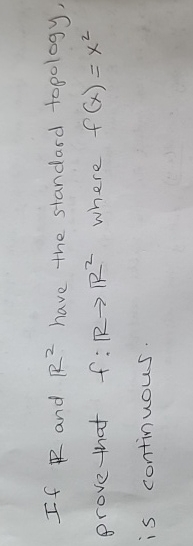 If ℝ and ℝ² have the standard topology,
prove that f: ℝ → ℝ² where f(x) = x²
is continuous.